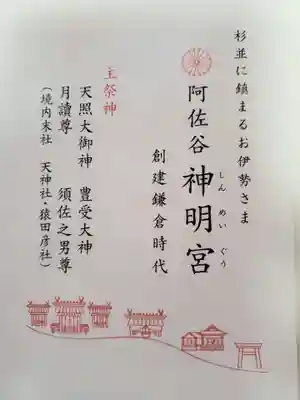 杉並に鎮まるお伊勢さま
阿佐谷神明宮
しんめいぐう
創建鎌倉時代
主祭神
天照大御神 豊受大神
月讀尊 須佐之男尊
（境内末社 天神社・猿田彦社）